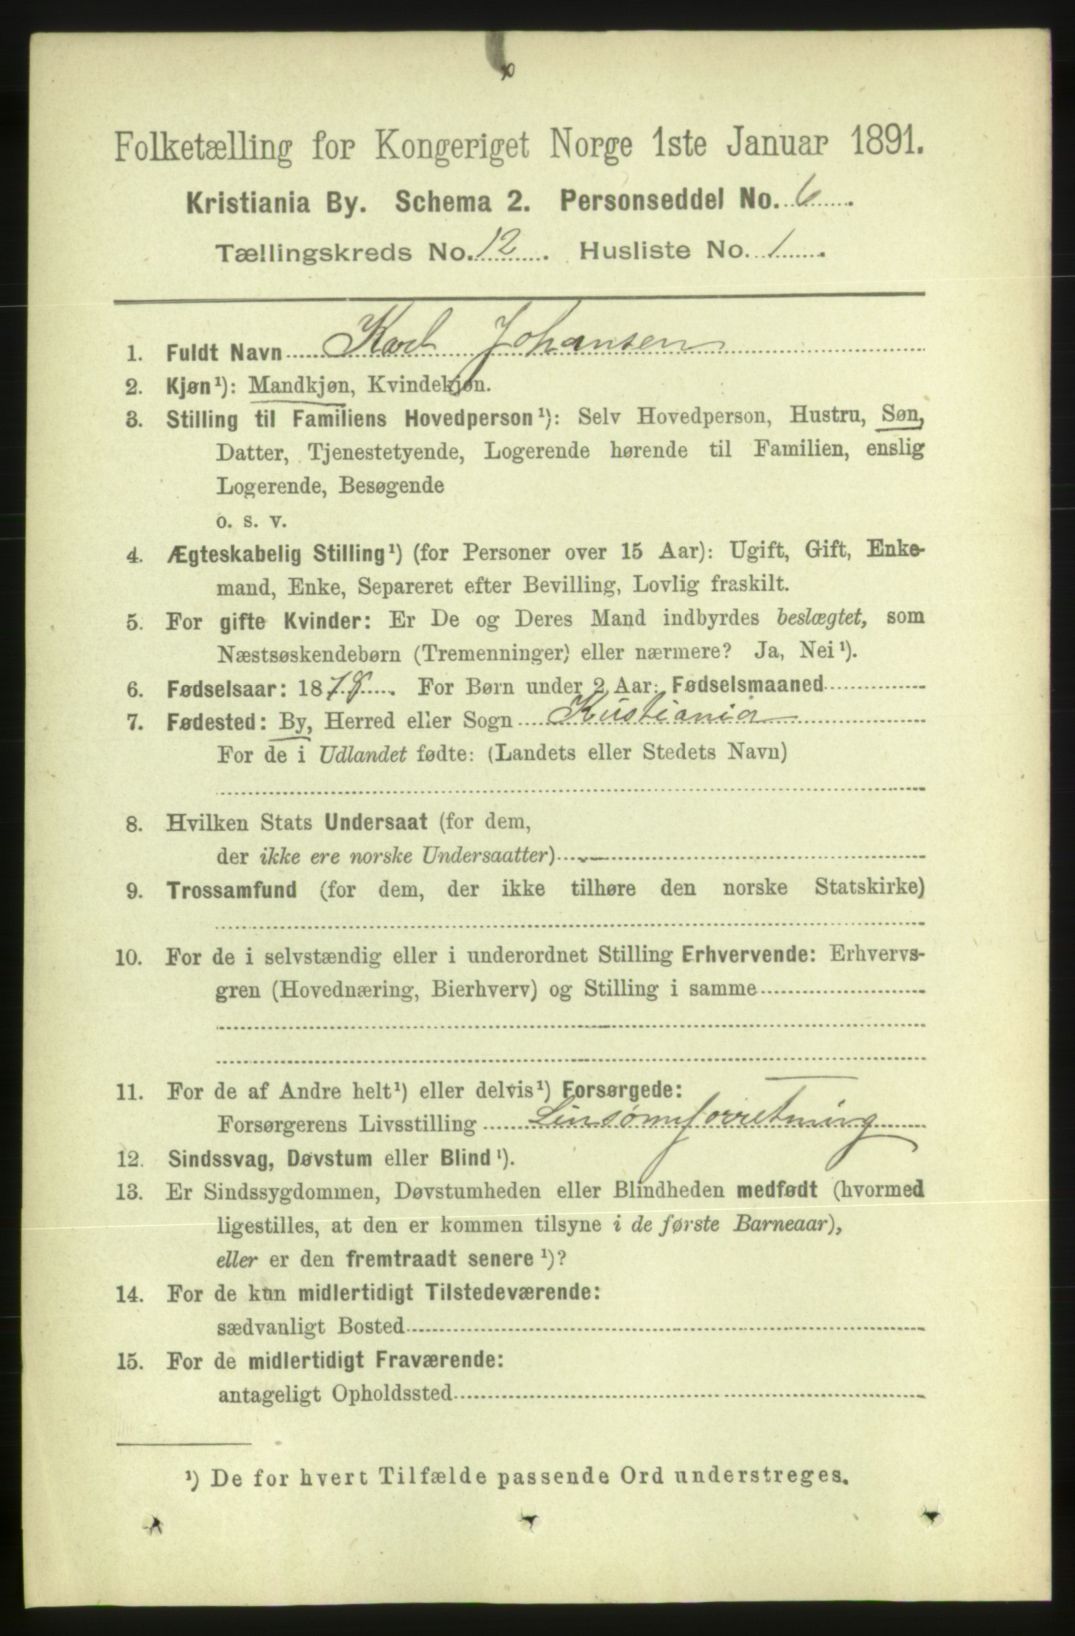 Folketælling for Kongeriget Norge 1ste Januar 1891.
Kristiania By. Schema 2. Personseddel No. 6.
Tællingskreds No. 12. Husliste No. 1.
1. Fuldt Navn Karl Johansen
2. Kjøn¹): Mandkjøn, Kvindekjøn.
3. Stilling til Familiens Hovedperson¹): Selv Hovedperson, Hustru, Søn,
Datter, Tjenestetyende, Logerende hørende til Familien, enslig
Logerende, Besøgende
o. s. v.
4. Ægteskabelig Stilling¹) (for Personer over 15 Aar): Ugift, Gift, Enke-
mand, Enke, Separeret efter Bevilling, Lovlig fraskilt.
5. For gifte Kvinder: Er De og Deres Mand indbyrdes beslægtet, som
Næstsøskendebørn (Tremenninger) eller nærmere? Ja, Nei¹).
6. Fødselsaar: 1878. For Børn under 2 Aar: Fødselsmaaned
7. Fødested: By, Herred eller Sogn Kristiania
For de i Udlandet fødte: (Landets eller Stedets Navn)
8. Hvilken Stats Undersaat (for dem,
der ikke ere norske Undersaatter)
9. Trossamfund (for dem, der ikke tilhøre den norske Statskirke)
10. For de i selvstændig eller i underordnet Stilling Erhvervende: Erhvervs-
gren (Hovednæring, Bierhverv) og Stilling i samme
11. For de af Andre helt¹) eller delvis¹) Forsørgede:
Forsørgerens Livsstilling Linsømforretning
12. Sindssvag, Døvstum eller Blind¹).
13. Er Sindssygdommen, Døvstumheden eller Blindheden medfødt (hvormed
ligestilles, at den er kommen tilsyne i de første Barneaar),
eller er den fremtraadt senere¹)?
14. For de kun midlertidigt Tilstedeværende:
sædvanligt Bosted
15. For de midlertidigt Fraværende:
antageligt Opholdssted
¹) De for hvert Tilfælde passende Ord understreges.